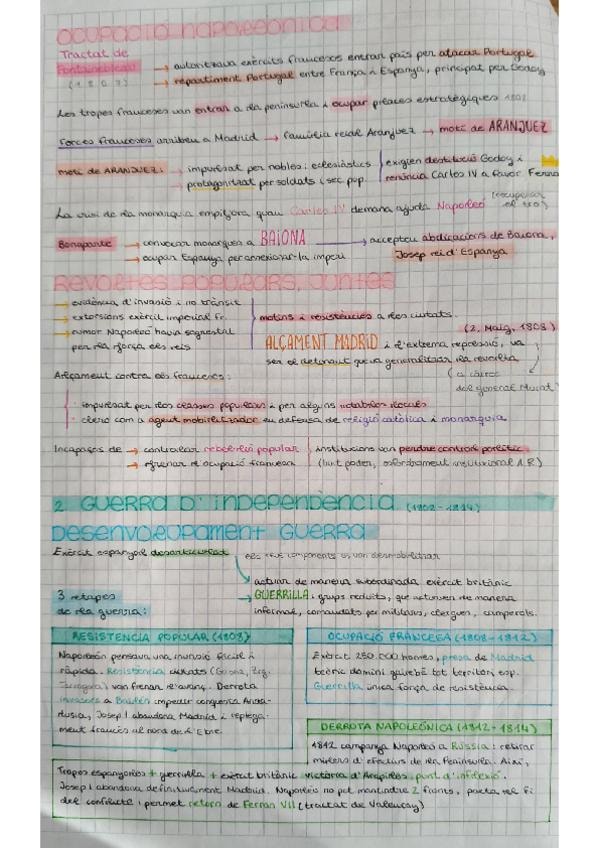 OCUPACIÓ NAPOLEÒNICA
Tractat de
Fontainebleau
(1807)
→ autoritzava exèrcits francesos entrar país per atacar Portugal
→ repartiment Portugal entre França i Espanya, principat per Godoy
Les tropes franceses van entrar a la península i ocupar places estratègiques
Forces franceses arriben a Madrid → família reial Aranjuez → motí de ARANJUEZ
motí de ARANJUEZ: → impulsat per nobles i eclesiàstics
→ protagonitzat per soldats i sec pop.
exigien destitució Godoy i
renúncia Carles IV a favor Ferra
La crisi de la monarquia empitjora quan Carles IV demana ajuda Napoleó (recuperar
el tro)
Bonaparte → convocar monarques a BAIONA → accepten abdicacions de Baiona,
→ ocupar Espanya per annexionar-la imperi
Josep rei d'Espanya
REVOLTES POPULARS, JUNTES
→ evidència d'invasió i no trànsit
→ extorsions exèrcit imperial fr.
→ rumor Napoleó havia segrestat
per la força els reis
motins i resistències a les ciutats.
(2. Maig, 1808)
ALÇAMENT MADRID i l'extrema repressió, va
ser el detonant que va generalitzar la revolta
(a càrrec
del general Murat)
Alçament contra els francesos:
· impulsat per les classes populars i per alguns notables locals
· clero com a agent mobilitzador en defensa de religió catòlica i monarquia
Incapaços de → controlar rebel·lió popular
→ frenar l'ocupació francesa
institucions van perdre control polític
(buit poder, esfondrament institucional A.R)
2. GUERRA D'INDEPENDÈNCIA (1808-1814)
DESENVOLUPAMENT GUERRA
Exèrcit espanyol desarticulat
els seus components es van desmobilitzar
actuar de manera subordinada exèrcit britànic
→ GUERRILLA: grups reduïts, que actuaven de manera
informal, comandats per militars, clergues, camperols.
3 etapes
de la guerra:
RESISTÈNCIA POPULAR (1808)
Napoleón pensava una invasió fàcil i
ràpida. Resistència ciutats (Girona, Zrg.
Tarragona) van frenar l'avanç. Derrota
invasors a Bailén impedir conquesta Anda-
lusia, Josep I abandona Madrid i replega-
ment francès al nord de l'Ebre.
OCUPACIÓ FRANCESA (1808-1812)
Exèrcit 250.000 homes, presa de Madrid
teòric domini gairebé tot territori esp.
Guerrilla única força de resistència.
DERROTA NAPOLEÒNICA (1812-1814)
1812 campanya Napoleó a Rússia: retirar
milers d'efectius de la Península. Així,
Tropes espanyoles + guerrilla + exèrcit britànic victòria d'Arapiles, punt d'inflexió.
Josep I abandona definitivament Madrid. Napoleó no pot mantindre 2 fronts, pacta el fi
del conflicte i permet retorn de Ferran VII (tractat de Valençay)